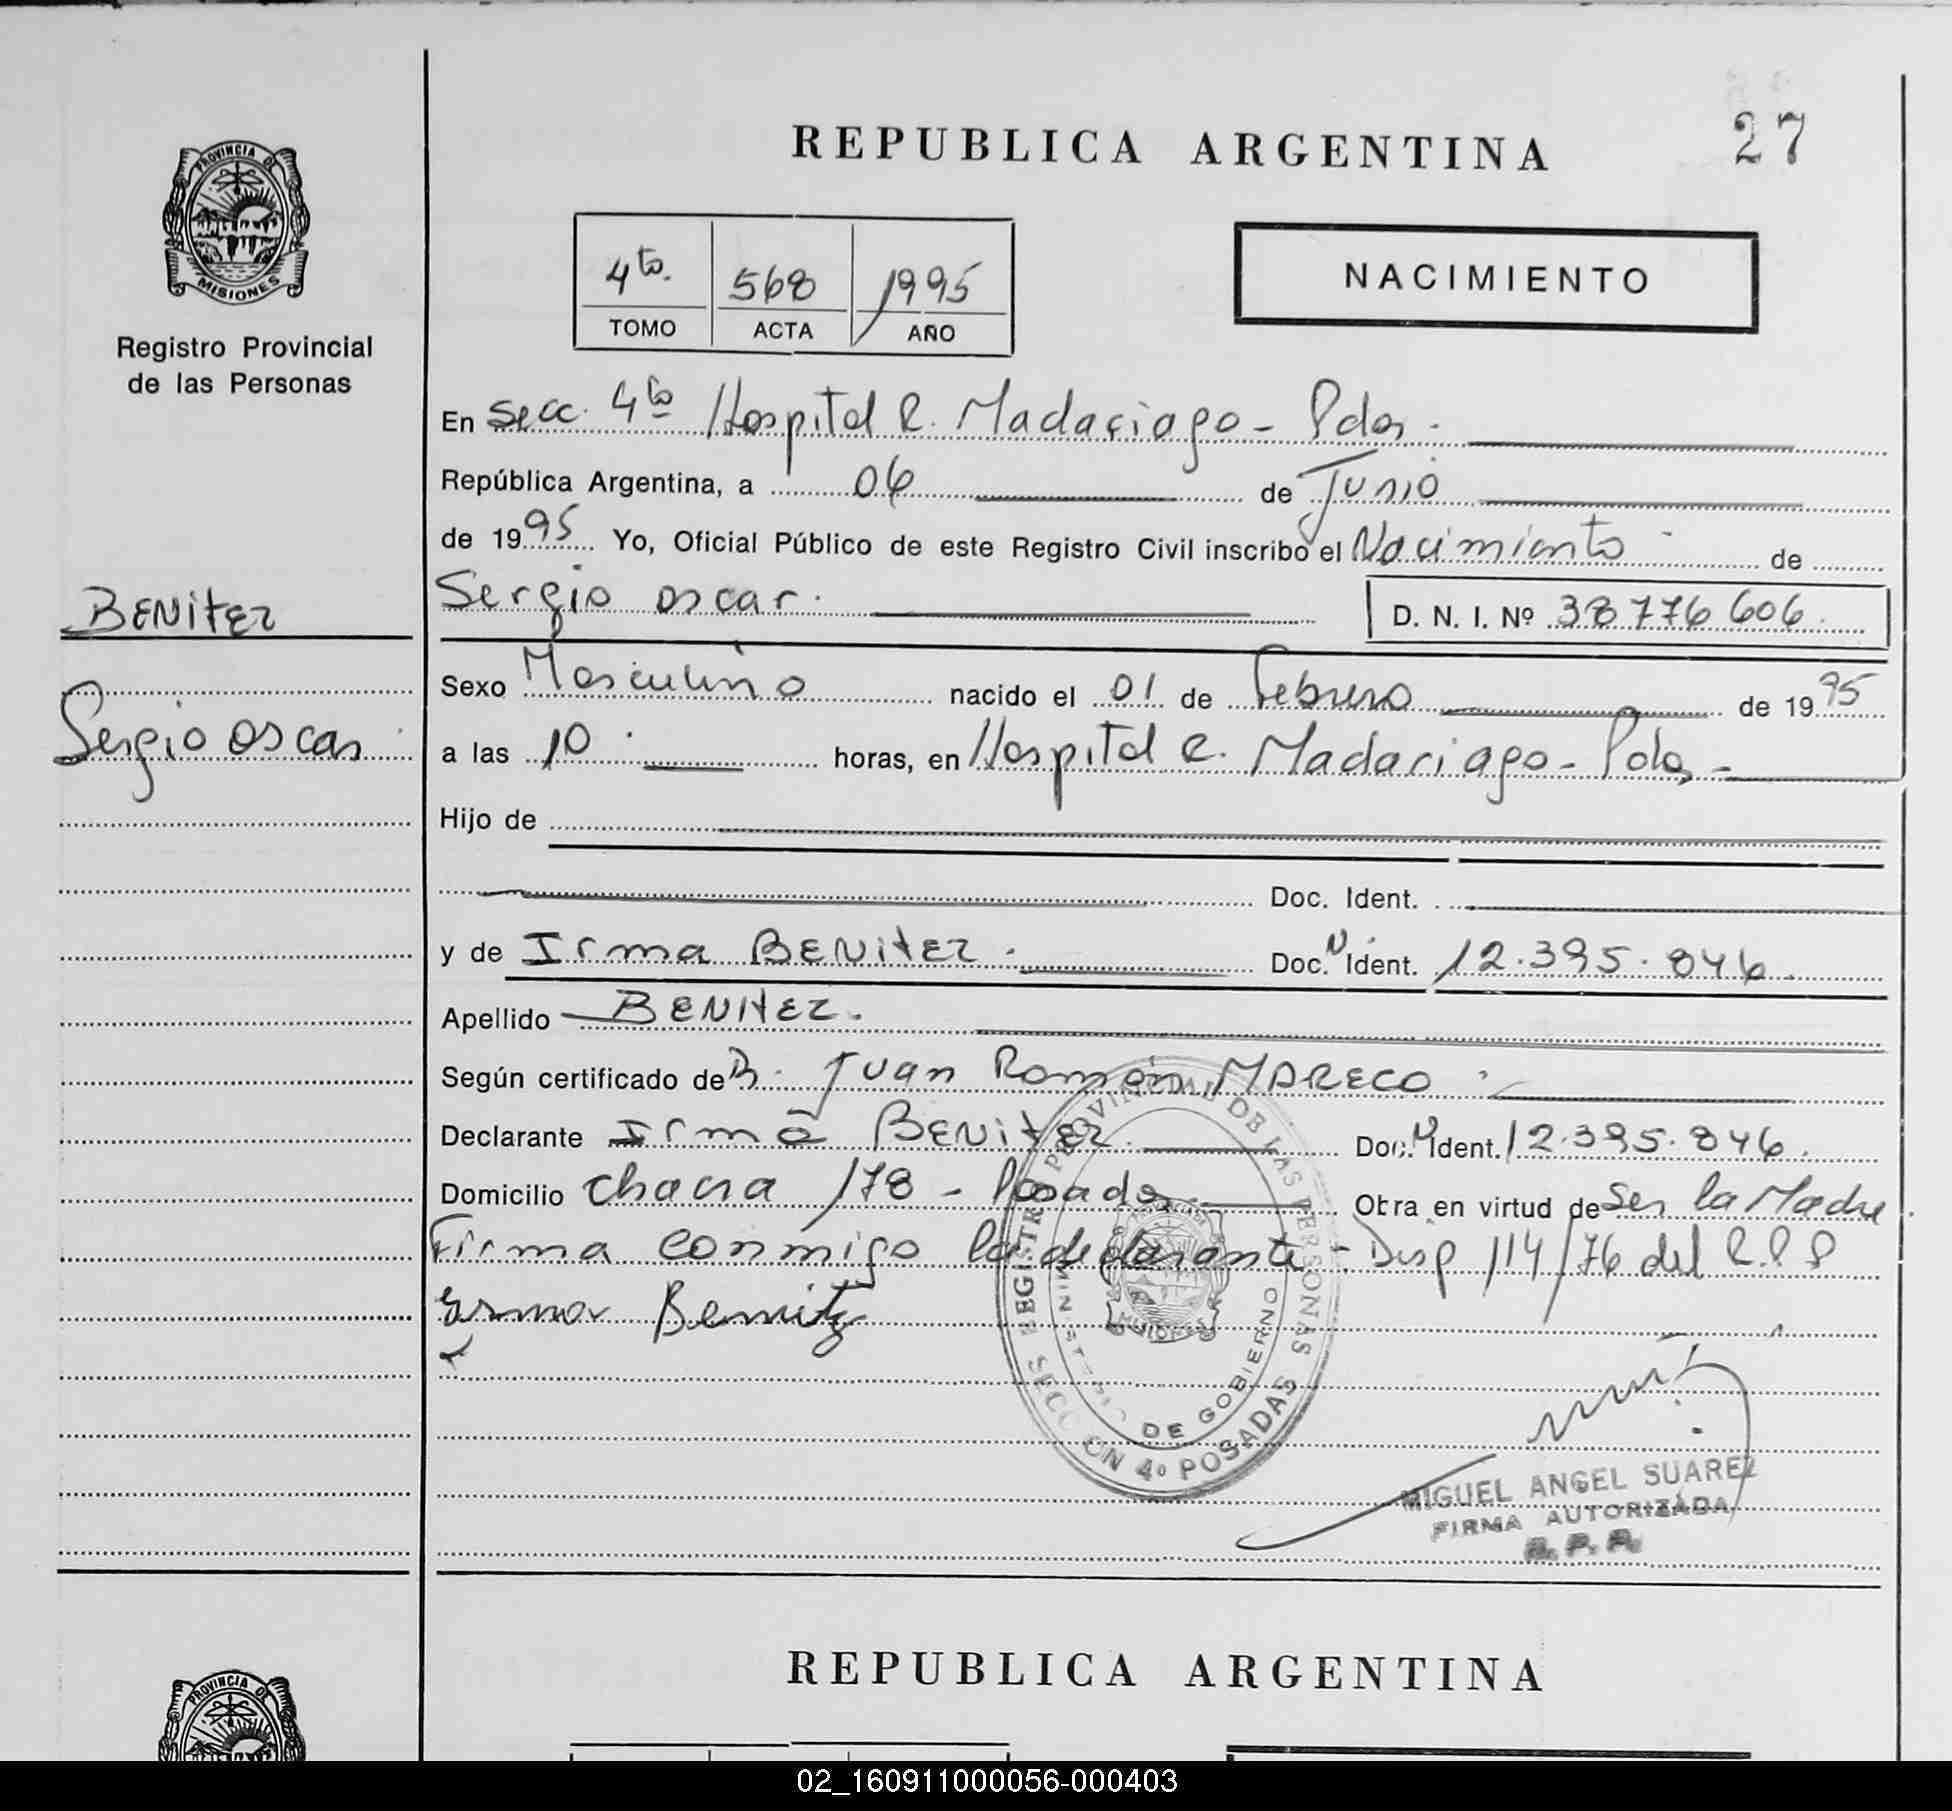 REPUBLICA ARGENTINA
27
PROVINCIA DE
MISIONES
Registro Provincial
de las Personas
4to. 568 1995
TOMO ACTA AÑO
NACIMIENTO
En secc. 4ta Hospital R. Madariaga - Pdas.
República Argentina, a 06 de Junio
de 1995 Yo, Oficial Público de este Registro Civil inscribo el Nacimiento de
BENITEZ
Sergio oscar.
D. N. I. Nº 38776606.
Sergio oscar
Sexo Masculino nacido el 01 de Febrero de 1995
a las 10 horas, en Hospital R. Madariaga - Pdas -
Hijo de
Doc. Ident.
y de Irma BENITEZ. Doc. N. Ident. 12.395.846.
Apellido BENITEZ.
Según certificado de D. Juan Ramón MARECO
Declarante Irma BENITEZ. Doc. N Ident. 12.395.846.
Domicilio chacra 178 - Posadas Obra en virtud de Ser la Madre.
Firma conmigo la declarante - Disp 114/76 del R.P.P
Irma Benitez
REGISTRO PROVINCIAL DE LAS PERSONAS
MINISTERIO DE GOBIERNO
SECCION 4º POSADAS
MISIONES
MIGUEL ANGEL SUAREZ
FIRMA AUTORIZADA
R. P. P.
REPUBLICA ARGENTINA
PROVINCIA DE
02_160911000056-000403